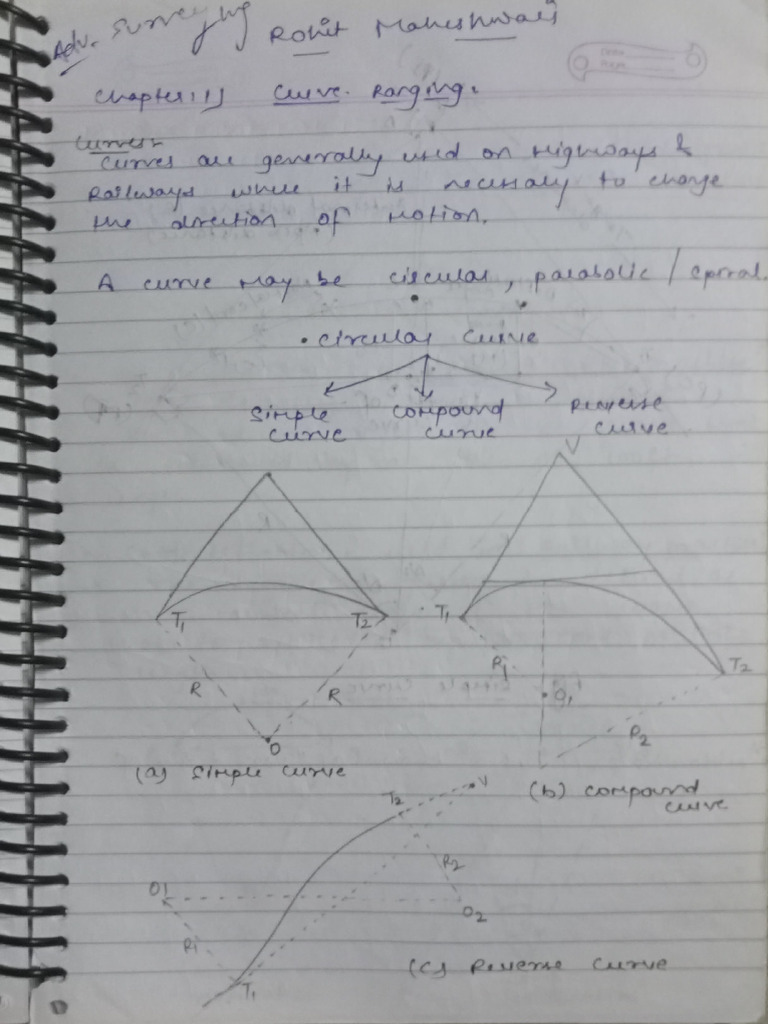 Adv. Surveying Rohit Maheshwari
Chapter:1) Curve Ranging.
Curves:-
Curves are generally used on Highways &
Railways where it is necessary to change
the direction of Motion.
A curve may be circular, parabolic / spiral.
• Circular Curve
Simple curve
Compound curve
Reverse curve
V
T1
T2
T1
T2
R
R
O
R1
O1
R2
(a) Simple Curve
(b) Compound curve
T2
V
R2
O1
O2
R1
T1
(c) Reverse Curve